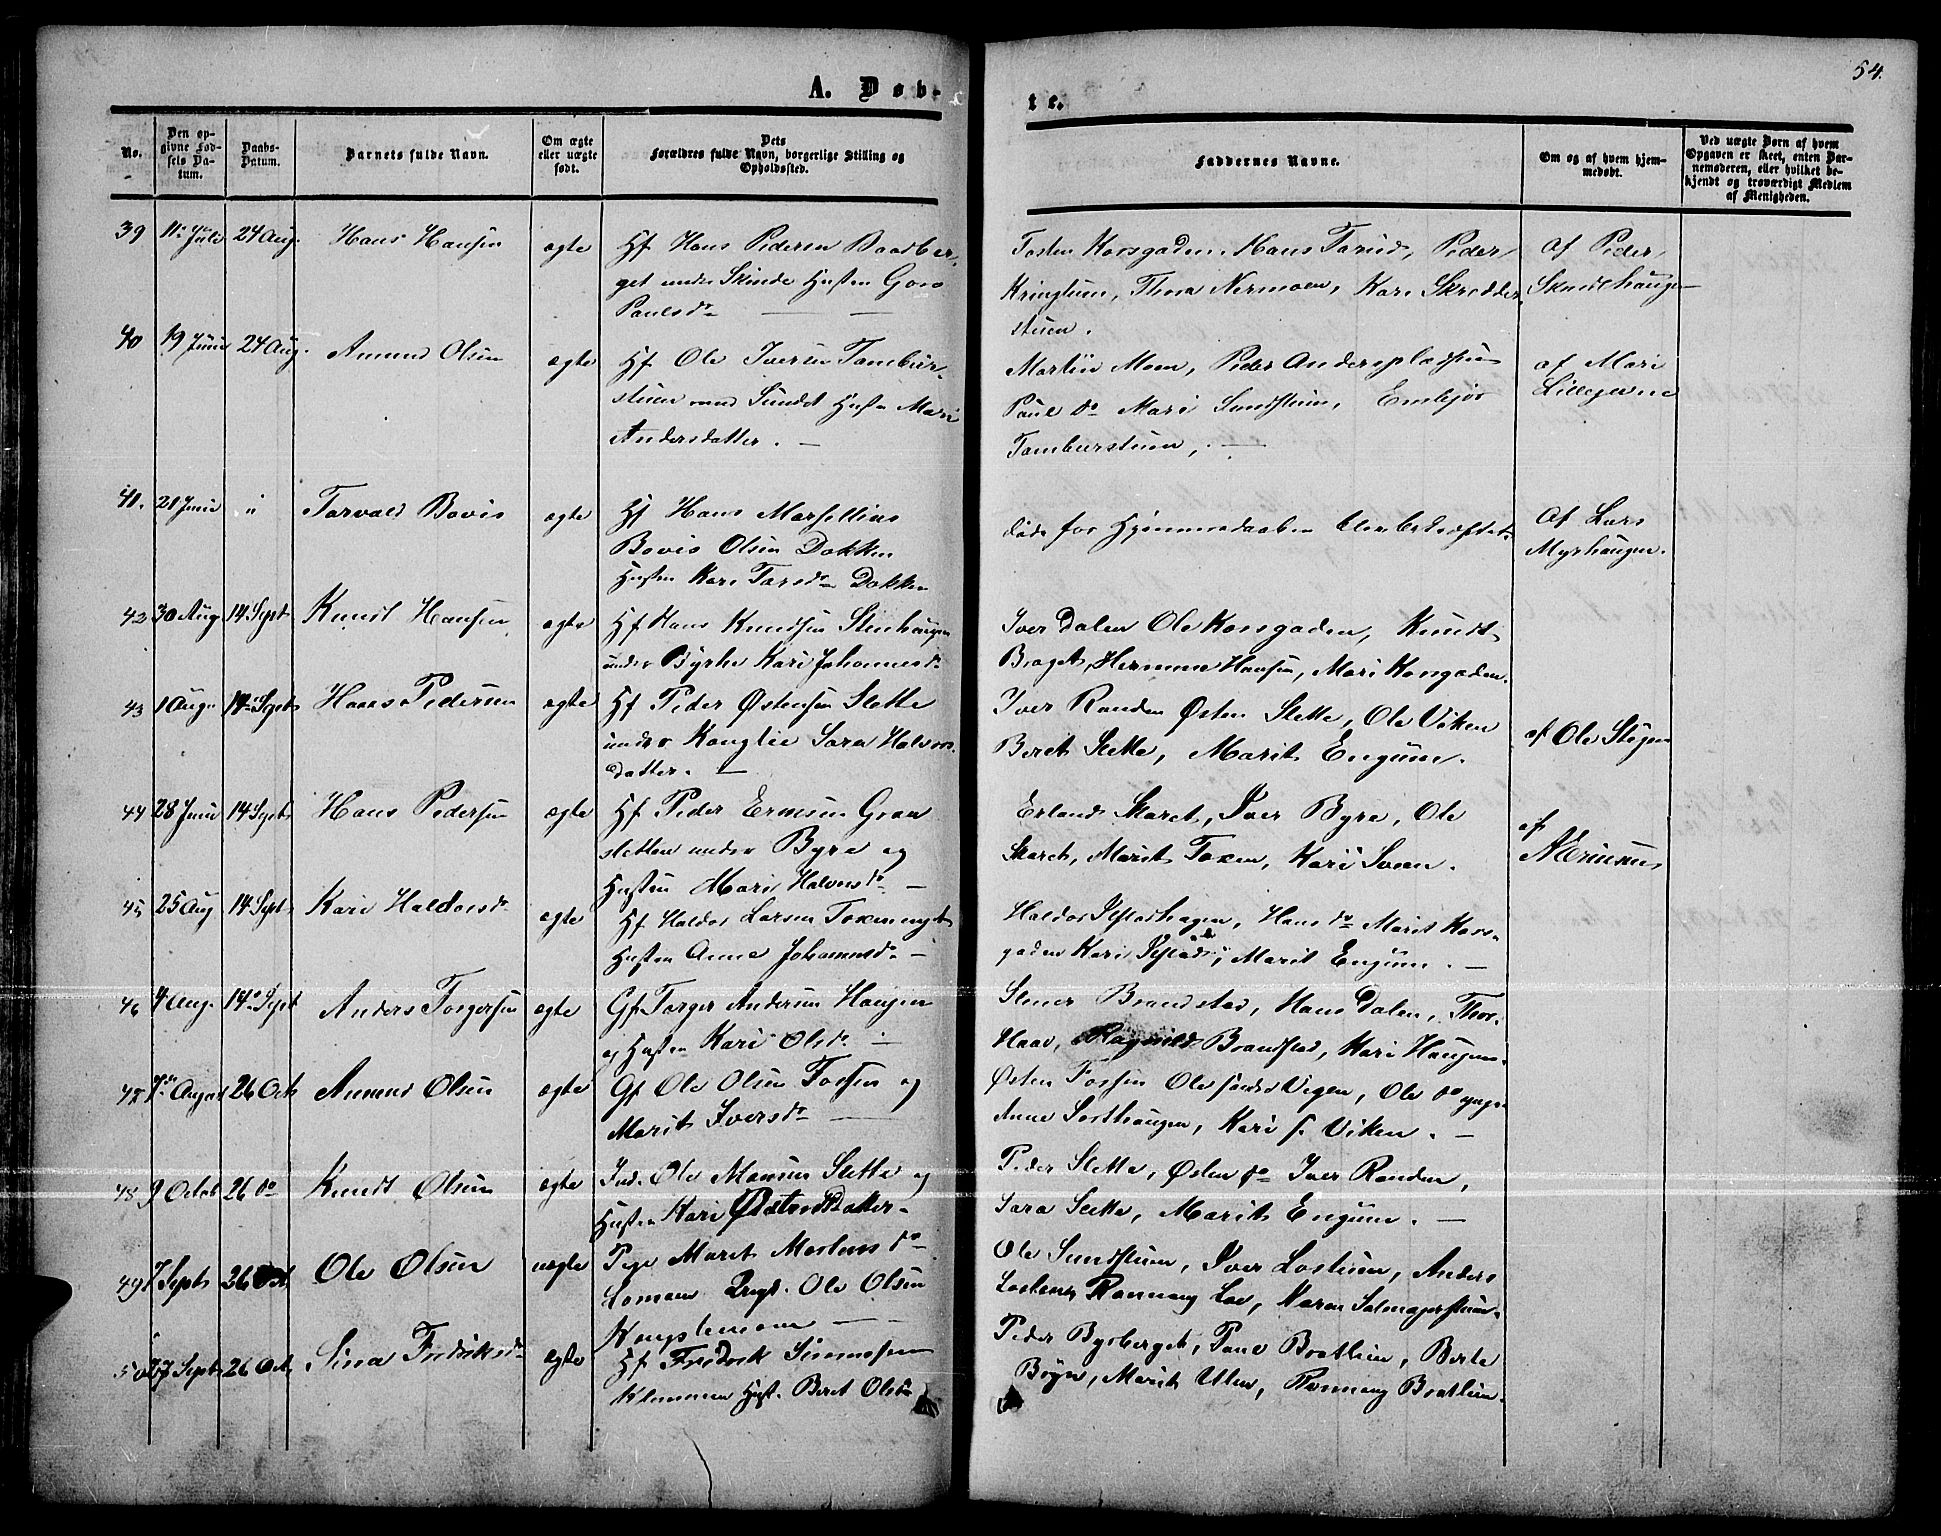 54.
A. Døb-
te.
No.
Den op-
givne Fød-
sels Da-
tum.
Daabs-
Datum.
Barnets fulde Navn.
Om ægte
eller uægte
født.
Dets
Forældres fulde Navn, borgerlige Stilling og
Opholdssted.
Faddernes Navne.
Om og af hvem hjem-
medøbt.
Ved uægte Børn af hvem
Opgaven er skeet, enten Bar-
nemoderen, eller hvilket be-
kjendt og troværdigt Medlem
af Menigheden.
39 11 Juli 24 Aug. Hans Hansen ægte Hf Hans Pedersen Baadber
get under Skinde Hustru
Paulsdr
Tosten Korsgaden, Hans Tarud, Peder
Kringluen, Thora Nermoen, Kari Skrædder
stuen.
af Peder
40 19 Juni 24 Aug. Amund Olsen ægte Hf Ole Iversen Tambur-
stuen Sundt Hustru Mari
Andersdatter.
Martin Moen, Peder Anderspladsen
Paul do Mari Sundstuen, Embjør
Tamburstuen,
af Mari
41. 21 Juni " Torvald Bovis ægte Hf Hans Marsellius
Bovis Olsen Dokken
Hustru Kari Torsdr Dokken
døde før Hjemmedaaben blev bekræftet
Af Lars
Myrhaugen.
42 30 Aug 14 Sept Knudt Hansen ægte Hf Hans Knudsen Stenhaugen
under Byrhe Kari Johannesdr
Iver Dalen Ole Korsgaden, Knudt
Braget, Hermme Hansen, Mari Korsgaden.
43 1 Aug. 14 Sept Hans Pedersen ægte Hf Peder Østensen Slette
under Konglie Sara Halvors
datter.
Iver Randen Østen Slette, Ole Viken
Beret Slette, Marit Engum.
af Ole Stegen
44 28 Juni 14 Sept Hans Pedersen ægte Hf Peder Ernsen Gran
sletten under Byre og
Hustru Mari Halvorsdr
Erland Skaret, Iver Byre, Ole
Skaret, Marit Toxen, Kari Sveen.
af
45 25 Aug 14 Sept Kari Haldorsdr ægte Hf Haldor Larsen Toxenmyt
Hustru Anne Johannesdr
Haldor Hans do Marit Kors-
gaden Kari Marit Engum.
46 4 Aug. 14 Sept Anders Torgersen ægte Gf Torger Andersen Haugen
og Hustru Kari Olsdr
Stener Brandstad, Hans Dalen, Thor
Haav, Ragnild Brandstad, Kari Haugen
47 7de August 26 Oct Amund Olsen ægte Gf Ole Olsen Fossen og
Marit Iversdr
Østen Fossen Ole Vigen, Ole do yngre
Anne Sorthaugen, Kari Viken.
48 9 Octob 26 do Knudt Olsen ægte Ind. Ole Monsen Slette og
Hustru Kari Østensdatter
Peder Slette, Østen do Iver Randen,
Sara Slette, Marit Engum.
49 7 Sept 26 Oct Ole Olsen uægte Pige Marit Mortensdr
Lomoen Ungk. Ole Olsen
Ole Sundstuen, Iver Lostuen, Anders
Rannaug Loe, Maren Salmagerstuen
50 17 Sept 26 Oct Sina Fredriksdr ægte Hf Fredrik Simensen
Klemmen Hust. Beret Olsdr
Peder Byrberget, Paul Bratlien, Berte
Bøyn, Marit Ulen, Rannaug Bratlien